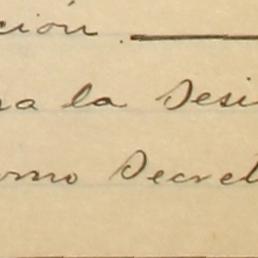 ción.
na la Desi
omo Secret